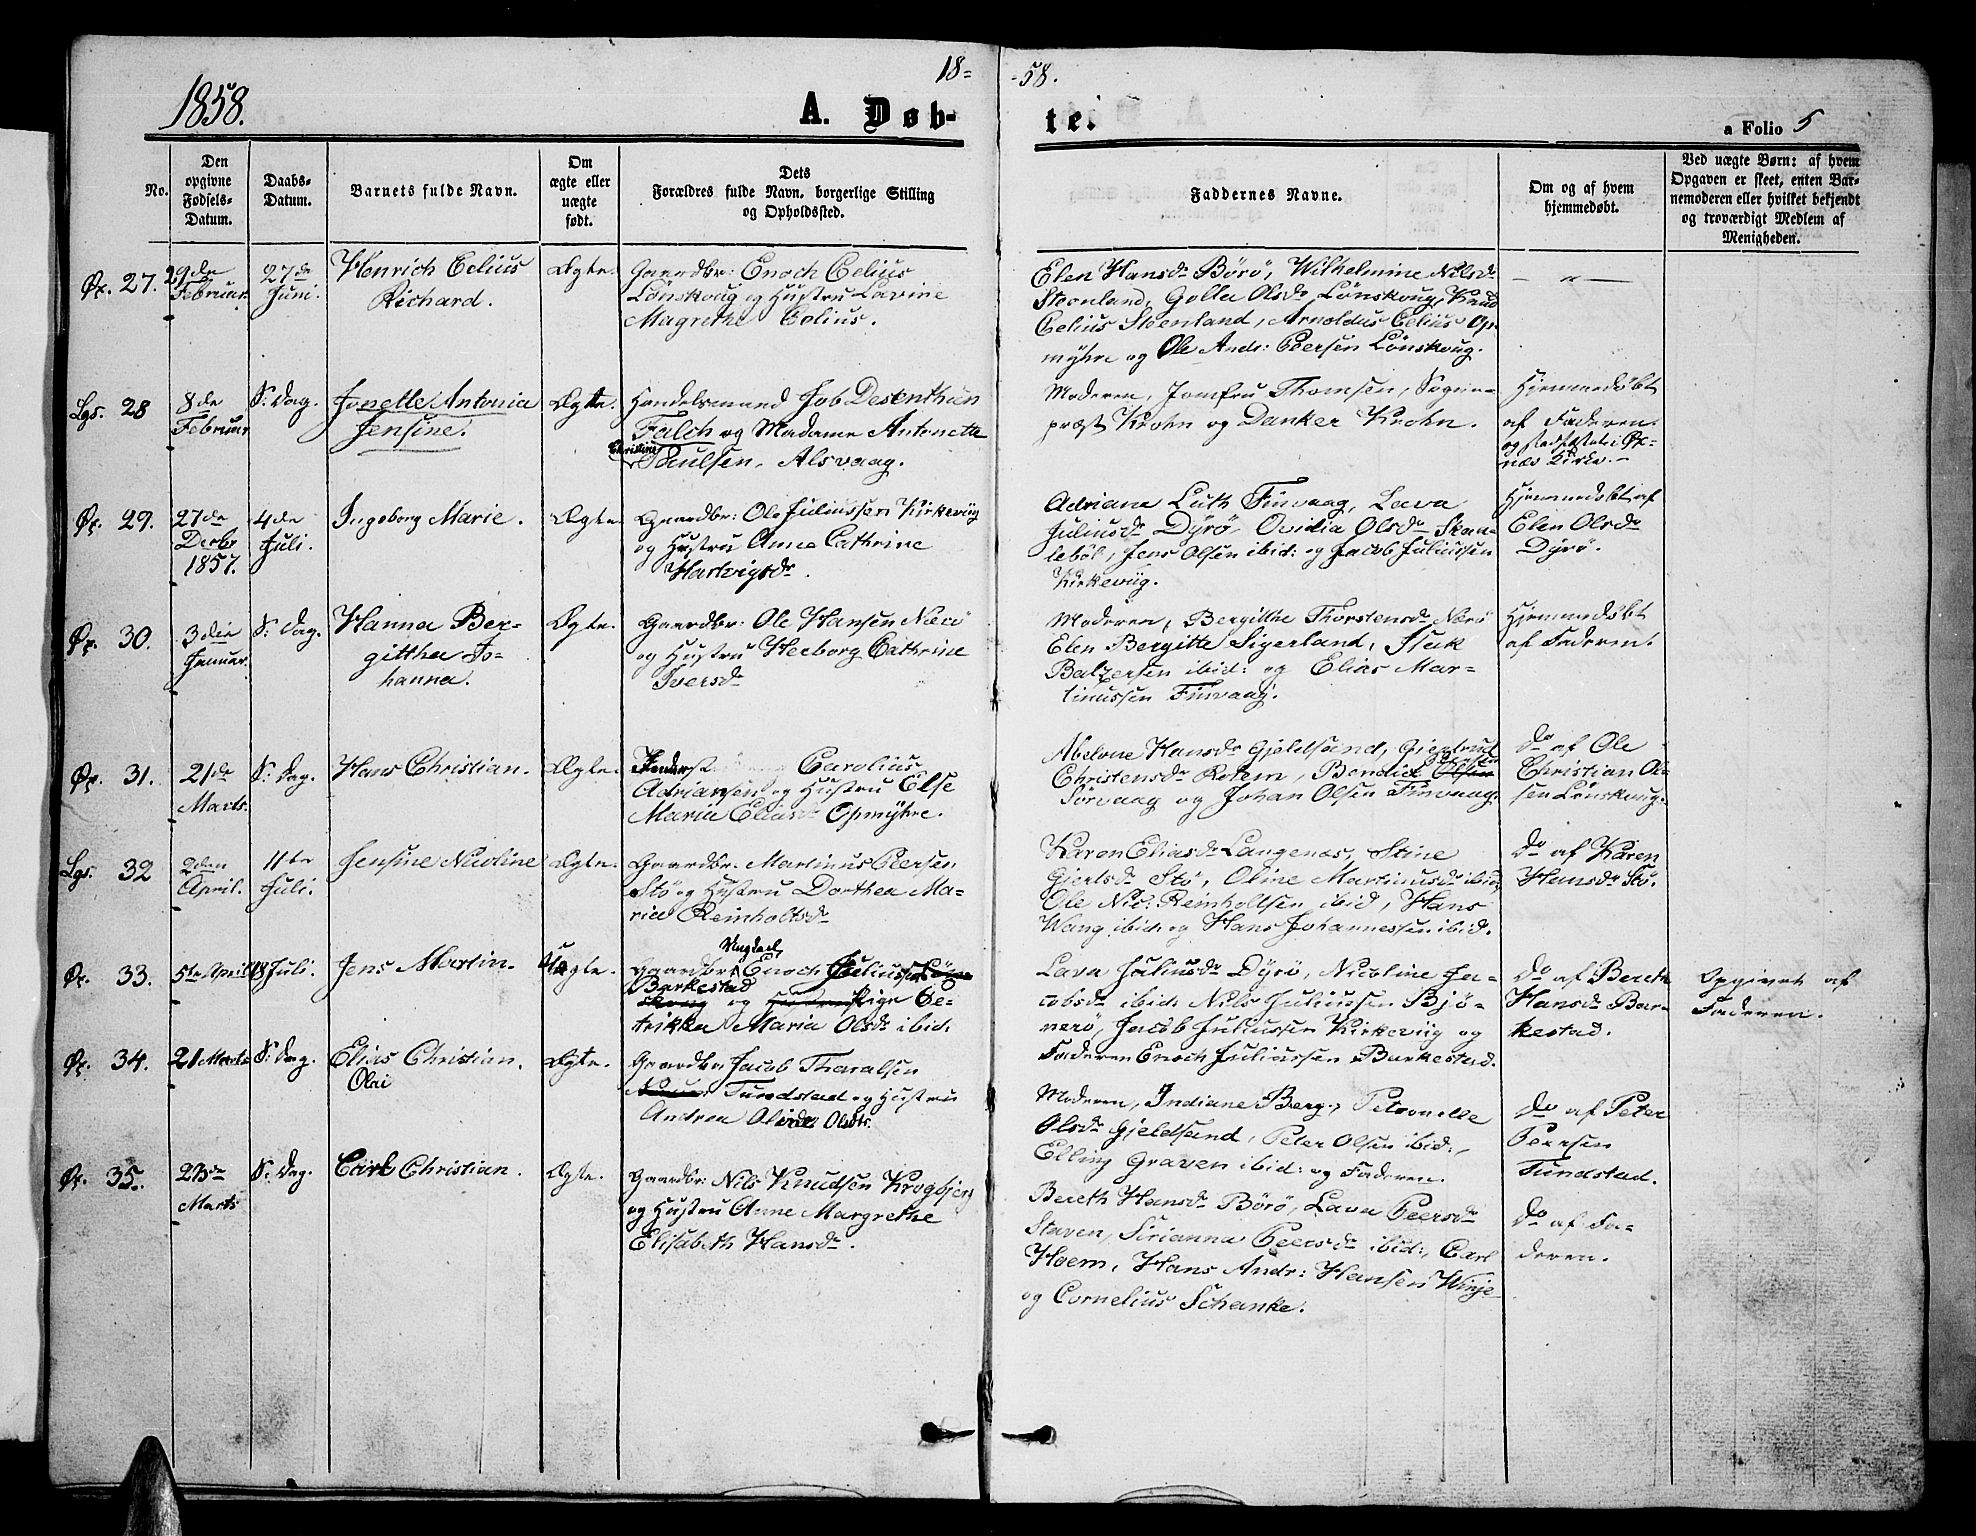 18= =58.
1858. A. Døb- te. a Folio 5
No.
Den opgivne Fødsels-Datum.
Daabs-Datum.
Barnets fulde Navn.
Om ægte eller uægte født.
Dets Forældres fulde Navn, borgerlige Stilling og Opholdssted.
Faddernes Navne.
Om og af hvem hjemmedøbt.
Ved uægte Børn: af hvem Opgaven er skeet, enten Barnemoderen eller hvilket bekjendt og troværdigt Medlem af Menigheden.
Øx. 27. 29de Februar. 27de Juni. Henrich Celius Richard. Ægte.
Gaardbr: Enoch Celius
Lønskoug og Hustru Lavine
Magrethe Celius.
Elen Hansdr Børø, Wilhelmine Nilsdr
Steenland, Golla Olsdr Lønskoug, Knud
Celius Steenland, Arnoldus Celius Op-
myhre og Ole Andr: Peersen Lønskoug.
— " —
Lgs. 28 8de Februar S: Dag. Jonette Antonia Jensine. Ægte.
Handelsmand Job Desenthun
Falch og Madame Antonette
Christine Paulsen, Alsvaag.
Moderen, Jomfru Thomsen, Sogne-
præst Krohn og Danker Krohn.
Hjemmedøbt
af Faderen
og stadfæstet i Øx-
næs Kirke.
Øx. 29. 27de Decbr 1857. 4de Juli. Ingeborg Marie. Ægte.
Gaardbr: Ole Juliussen Kirkeviig
og Hustru Anne Cathrine
Hartvigsdr.
Adriane Luth Finvaag, Lava
Juliusdr Dyrø, Ovidia Olsdr Skan-
lebøl, Jens Olsen ibid: og Jacob Juliussen
Kirkeviig.
Hjemmedøbt af
Elen Olsdr
Dyrø.
Øx. 30. 3die Januar. S: Dag. Hanna Ber-
githa Jo-
hanna. Ægte.
Gaardbr: Ole Hansen Nærø
og Hustru Heeborg Cathrine
Iversdr
Moderen, Bergitthe Thorstensdr Nærø
Elen Bergitte Sigerland,
Baltzersen ibid: og Elias Mar-
tinussen Finvaag.
Hjemmedøbt
af Faderen.
Øx. 31. 21de Marts. S: Dag. Hans Christian. Ægte.
Carolius
Adriansen og Hustru Else
Maria Eliasdr Opmyhre.
Abelone Hansdr Gjeldsand, Gjertrud
Christensdr Rohem, Bendict Olsen
Sørvaag og Johan Olsen Finvaag.
do af Ole
Christian Ol-
sen Lønskoug.
Lgs. 32 2den April. 11te Juli. Jensine Nicoline Ægte.
Gaardbr: Martinus Peersen
Stø og Hustru Dorthea Ma-
ria Reinholtsdr
Karen Eliasdr Langenæs, Stine
Gjertsdr Stø, Oline Martinusdr ibid
Ole Nic: Reinholtsen ibid, Hans
Wang ibid: og Hans Johannessen ibid.
do af Karen
Hansdr Stø.
Øx. 33. 5te April 18 Juli. Jens Martin. Uægte.
Ungkarl
Gaardbr: Enoch Juliussen
Barkestad
og Pige Pe-
trikka Maria Olsdr ibid:
Lava Juliusdr Dyrø, Nicoline Ja-
cobsdr ibid: Nils Juliussen Bjø-
nerø, Jacob Juliussen Kirkeviig og
Faderen Enoch Juliussen Barkestad.
do af Bereth
Hansdr Bar-
kestad.
Opgivet af
Faderen.
Øx. 34. 21 Marts S: Dag. Elias Christian
Olai Ægte.
Gaardbr Jacob Thoralsen
Tundstad og Hustru
Andrea Olsdtr.
Moderen, Indiane Berg, Petronelle
Olsdr Gjeldsand, Peter Olsen ibid:,
Elling Graven ibid: og Faderen.
do af Peter
Peersen
Tundstad.
Øx. 35. 23de Marts S: Dag. Carl Christian. Ægte.
Gaardbr: Nils Knudsen Krogbjerg
og Hustru Anne Margrethe
Elisabeth Hansdr.
Bereth Hansdr Børø, Lava Peersdr
Staven, Sirianna Peersdr ibid:, Carl
Hoem, Hans Andr: Hansen Winje
og Cornelius Schanke.
do af Fa-
deren.